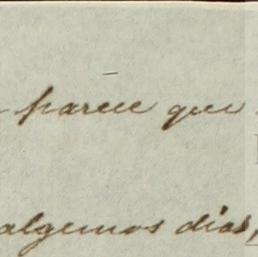 parece que
algunos dias,